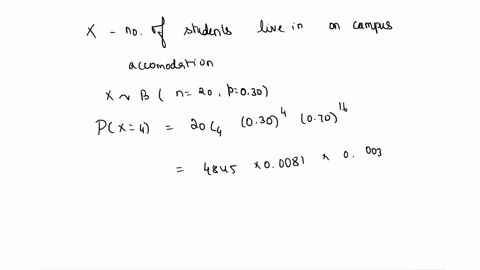 X - no. of students live in on campus
accomodation
X ~ B ( n = 20, p=0.30)
P(X=4) = 20C4 (0.30)^4 (0.70)^16
= 4845 × 0.0081 × 0.003